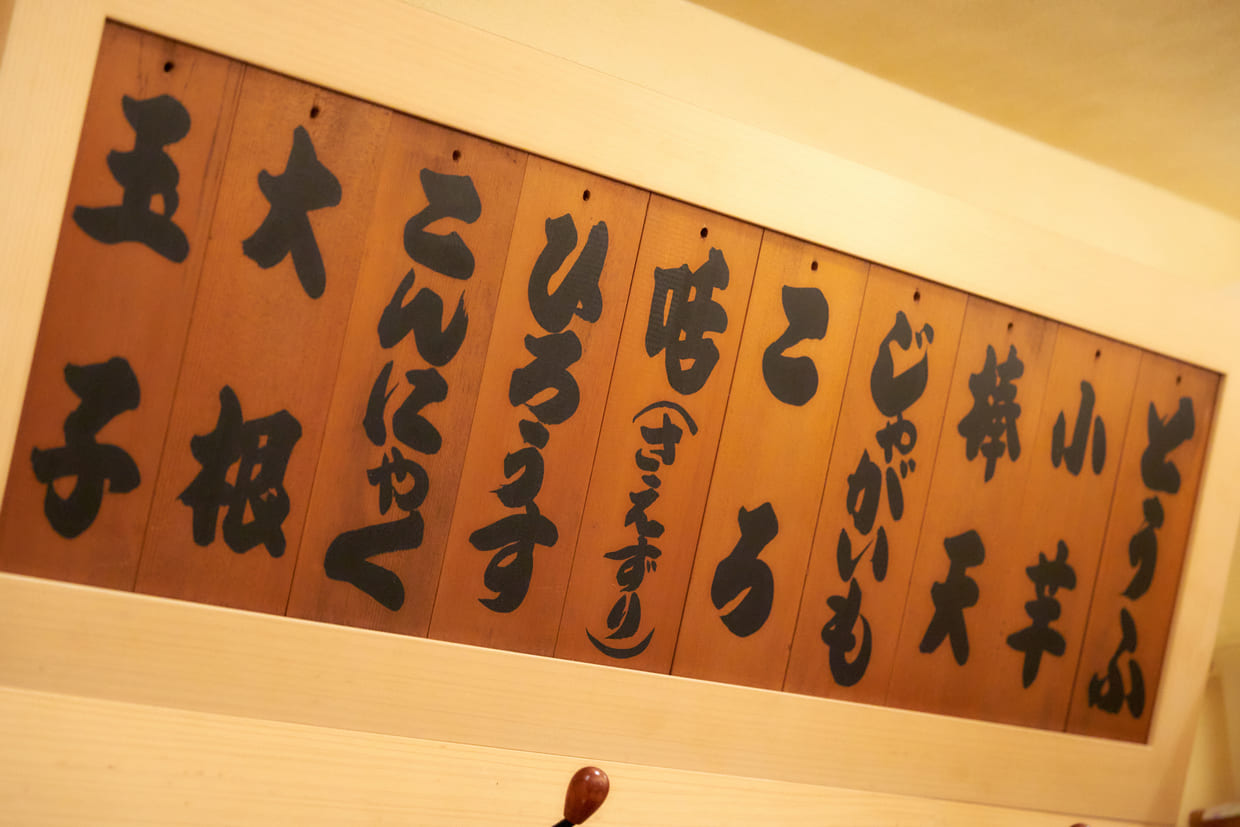 とうふ
小芋
棒天
じゃがいも
ころ
咶(さえずり)
ひろうす
こんにゃく
大根
玉子